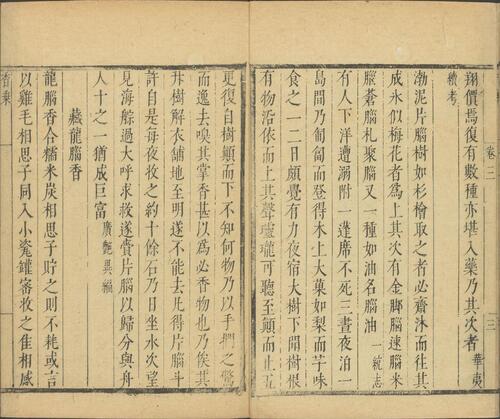 卷三
三
翔價焉復有數種亦堪入藥乃其次者 華夷
續考
渤泥片腦樹如杉檜取之者必齋沐而往其
成氷似梅花者爲上其次有金脚腦速腦米
腦蒼腦札聚腦又一種如油名腦油 一統志
有人下洋遭溺附一蓬席不死三晝夜泊一
島間乃匍匐而登得木上大菓如梨而芋味
食之一二日頗覺有力夜宿大樹下聞樹根
有物沿依而上其聲瓏瓏可聽至顛而止五
更復自樹顛而下不知何物乃以手捫之驚
而逸去嗅其掌香甚以爲必香物也乃俟其
升樹解衣鋪地至明遂不能去凢得片腦斗
許自是每夜收之約十餘石乃日坐水次望
見海䑸過大呼求救遂賫片腦以歸分與舟
人十之一猶成巨富 廣艷異編
藏龍腦香
龍腦香合糯米炭相思子貯之則不耗或言
以雞毛相思子同入小瓷罐密收之佳相感
香乘